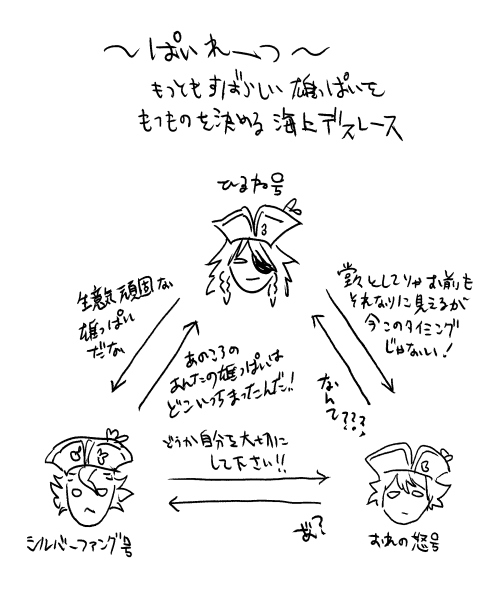 ～ぱいれーつ～
もっともすばらしい雄っぱいを
もつものを決める海上デスレース
ひるね号
生意気頑固な
雄っぱい
だな
堂々としてりゃお前も
それなりに見えるが
今このタイミング
じゃない!
あのころの
あんたの雄っぱいは
どこいっちまったんだ!!
なんて???
どうか自分を大切に
して下さい!!
シルバーファング号
おれの怒号